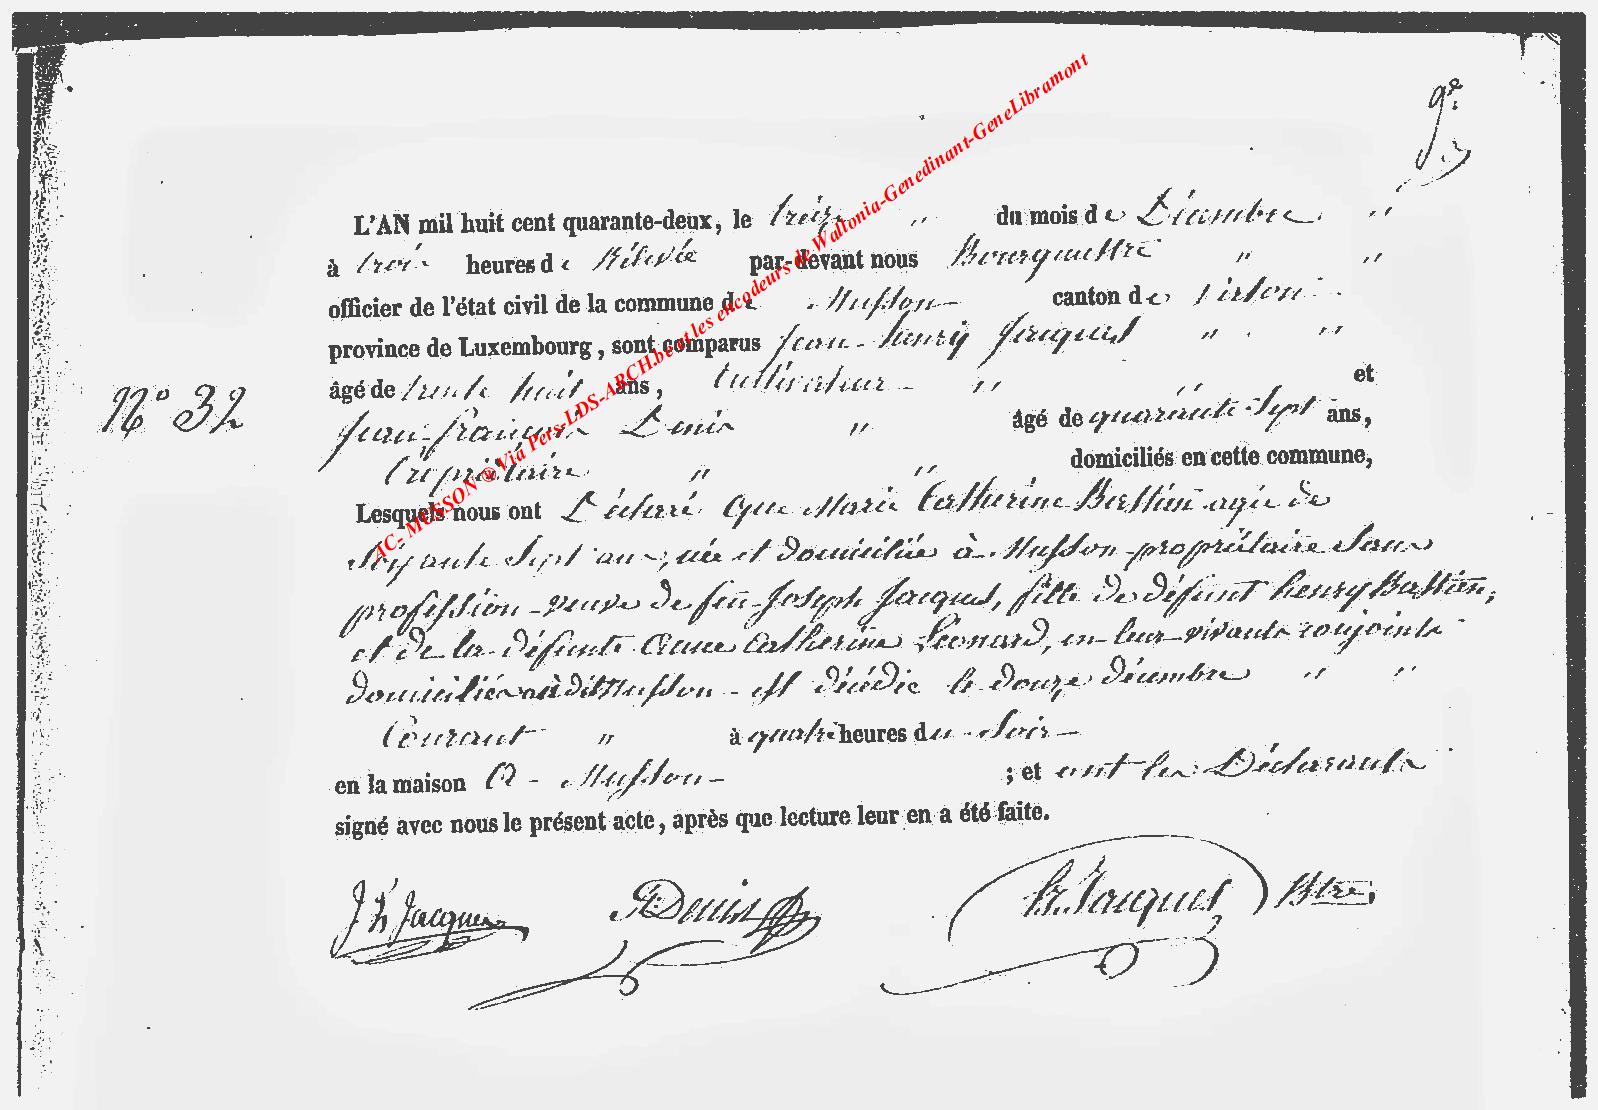 9e
L'AN mil huit cent quarante-deux, le treize " du mois de Décembre "
à trois heures de Rélevée par-devant nous Bourguemestre " "
officier de l'état civil de la commune de Musson canton de Virton
province de Luxembourg, sont comparus Jean-henry Jacques " "
âgé de trente huit ans, Cultivateur " " et
N° 32
Jean-françois Denis " âgé de quarante-Sept ans,
Propriétaire " " domiciliés en cette commune,
Lesquels nous ont Déclaré Que Marie Catherine Bastin agée de
Soixante Sept ans, née et domiciliée à Musson propriétaire Sans
profession veuve de feu Joseph Jacques, fille de défunt henry Bastin,
et de la défunte Anne Catherine Léonard, en leur vivants conjoints
domiciliés audit Musson - est décédée le douze décembre " "
Courant " à quatre heures du Soir
en la maison A Musson ; et ont les Déclarants
signé avec nous le présent acte, après que lecture leur en a été faite.
J h Jacques Denis Jacques Btre.
AC- MUSSON @ Via Pers-LDS-ARCH.be et les encodeurs de Wallonia-Genedinant-GeneLibramont